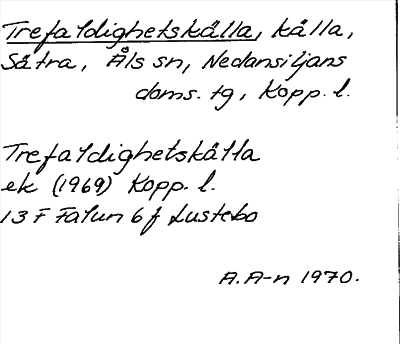 Trefaldighetskälla, källa,
Sätra, Åls sn, Nedansiljans
doms. tg, Kopp. l.
Trefaldighetskälla
ek (1969) Kopp. l.
13 F Falun 6 f Lustebo
A. A-n 1970.